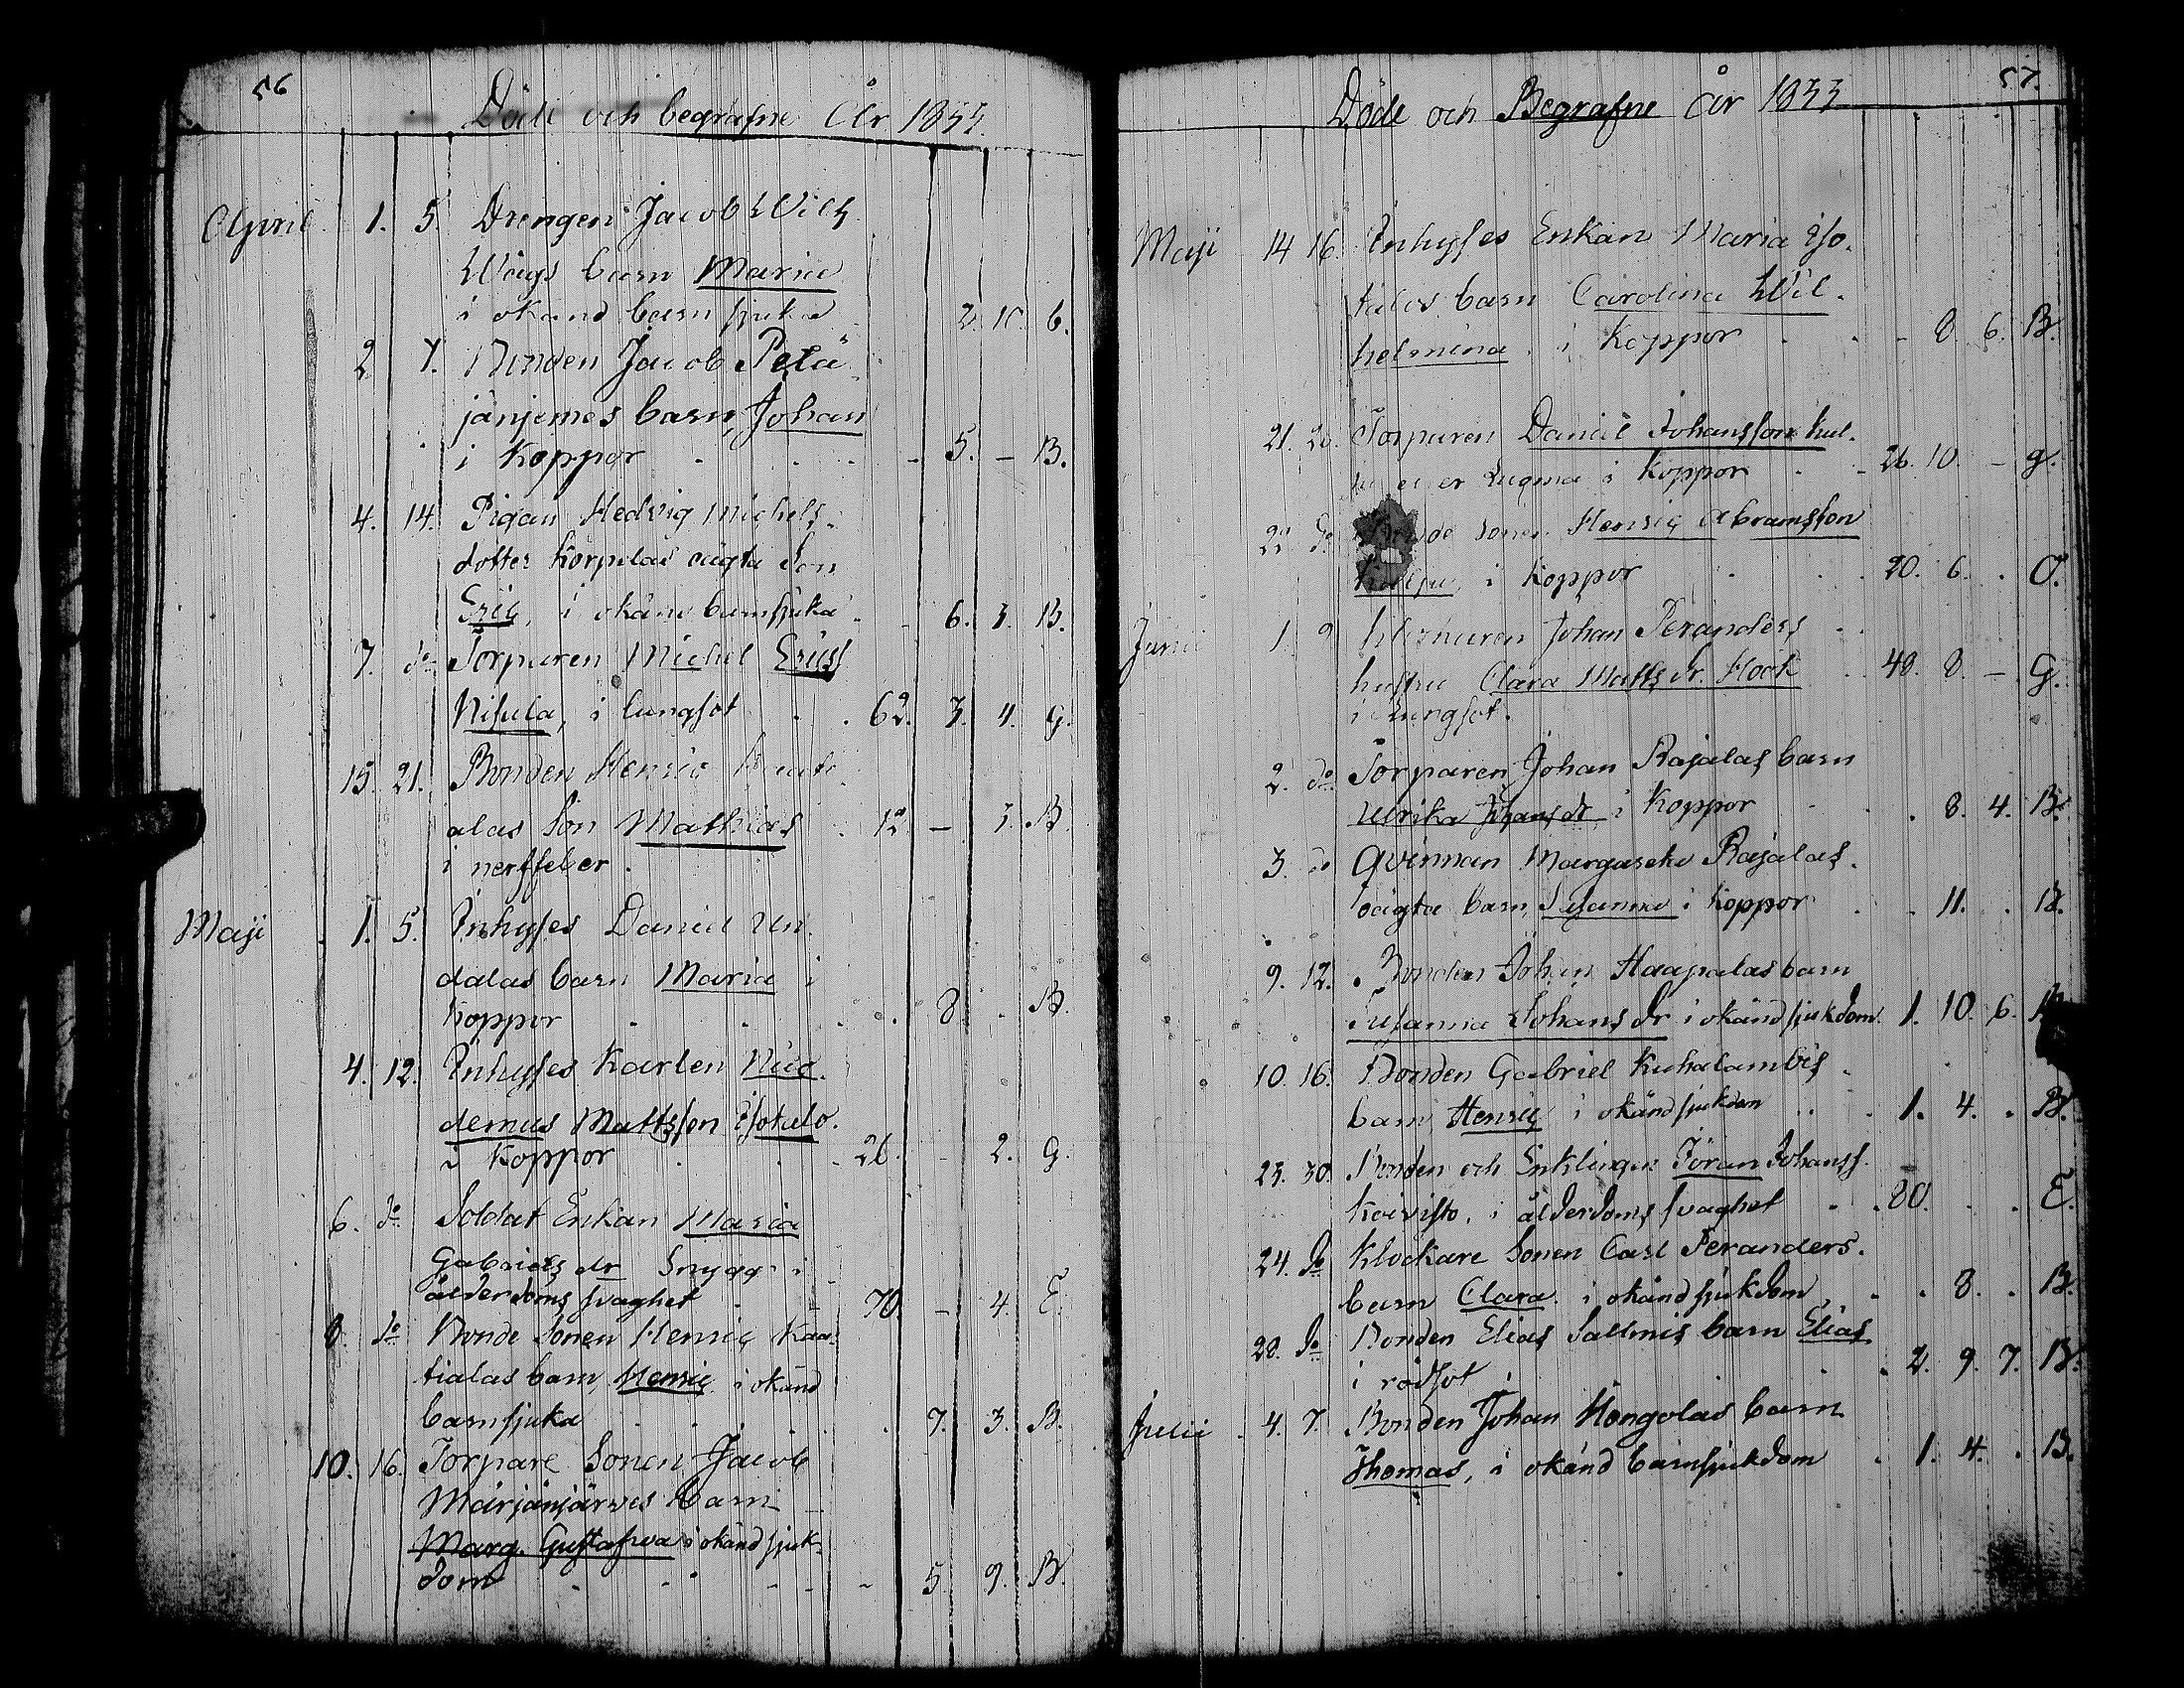 56
Döde och begrafne År 1833.
April. 1. 5. Drengen Jacob Wilh
Wägs barn Maria
i okänd barnsjuka 2. 10. 6.
2 7. Bonden Jacob Petä
jänjemes barn, Johan
i Koppor - 5. - B.
4. 14. Pigan Hedvig Michels
dotter Korpelas oägta Son
Eric, i okänd barnsjuka - 6. 3. B.
7. do Torparen Michel Ericss
Nisula, i lungsot 62. 3. 4. G.
15. 21. Bonden Henric
alas Son Mathias 12 - 3. B.
i nerffeber.
Maji 1. 5. Inhyses Daniel Un
dalas barn Maria i
Koppor 8 . B.
4. 12. Inhyses Karlen Nico
demus Mattsson Isotalo.
i Koppor 26. - 2. G.
6. do Soldat Enkan Maria
Gabriels dr Snygg i
ålderdoms svaghet - 70. - 4. E.
8. do Bonde Sonen Henric Kaa
tialas barn, Henric i okänd
barnsjuka 7. 3. B.
10. 16. Torpare Sonen Jacob
Märjänjärvis barn
Marg. Gustafva i okänd sjuk
dom - 5. 9. B.
57.
Döde och Begrafne År 1833
Maji 14 16. Inhyses Enkan Maria Iso
talos barn Carolina Wil
helmina i Koppor - 8. 6. B.
21. Torparen Daniel Johansson
i Koppor - 26. 10. - G.
do Sonen Henric Abramsson
i Koppor 20. 6. . O.
Junii 1 9 Johan Peranders
hustru Clara Matts dr. Hook 48. 8. - G.
i Lungsot.
2. do Torparen Johan Rajalas barn
Ulrika Johans dr i Koppor . 8. 4. B.
3. do Qvinnan Margareta Rajalas
oägta barn, Susanna i Koppor . 11. . B.
9. 12. Bonden Johan Haapalas barn
Susanna Johans dr i okänd sjukdom. 1. 10. 6. B.
10. 16. Bonden Gabriel Kuhalambis
barn, Henric i okänd sjukdom 1. 4. . B.
23. 30. Bonden och Enklingen Jöran Johanss.
Koivisto, i ålderdoms svaghet 80. . . E.
24. do Klockare Sonen Carl Peranders.
barn Clara i okänd sjukdom, . 8. . B.
28. do Bonden Elias Sallmis barn Elias
i rödsot 2. 9. 7. B.
Julii 4. 7. Bonden Johan Hongolas barn
Thomas, i okänd barnsjukdom 1. 4. . B.